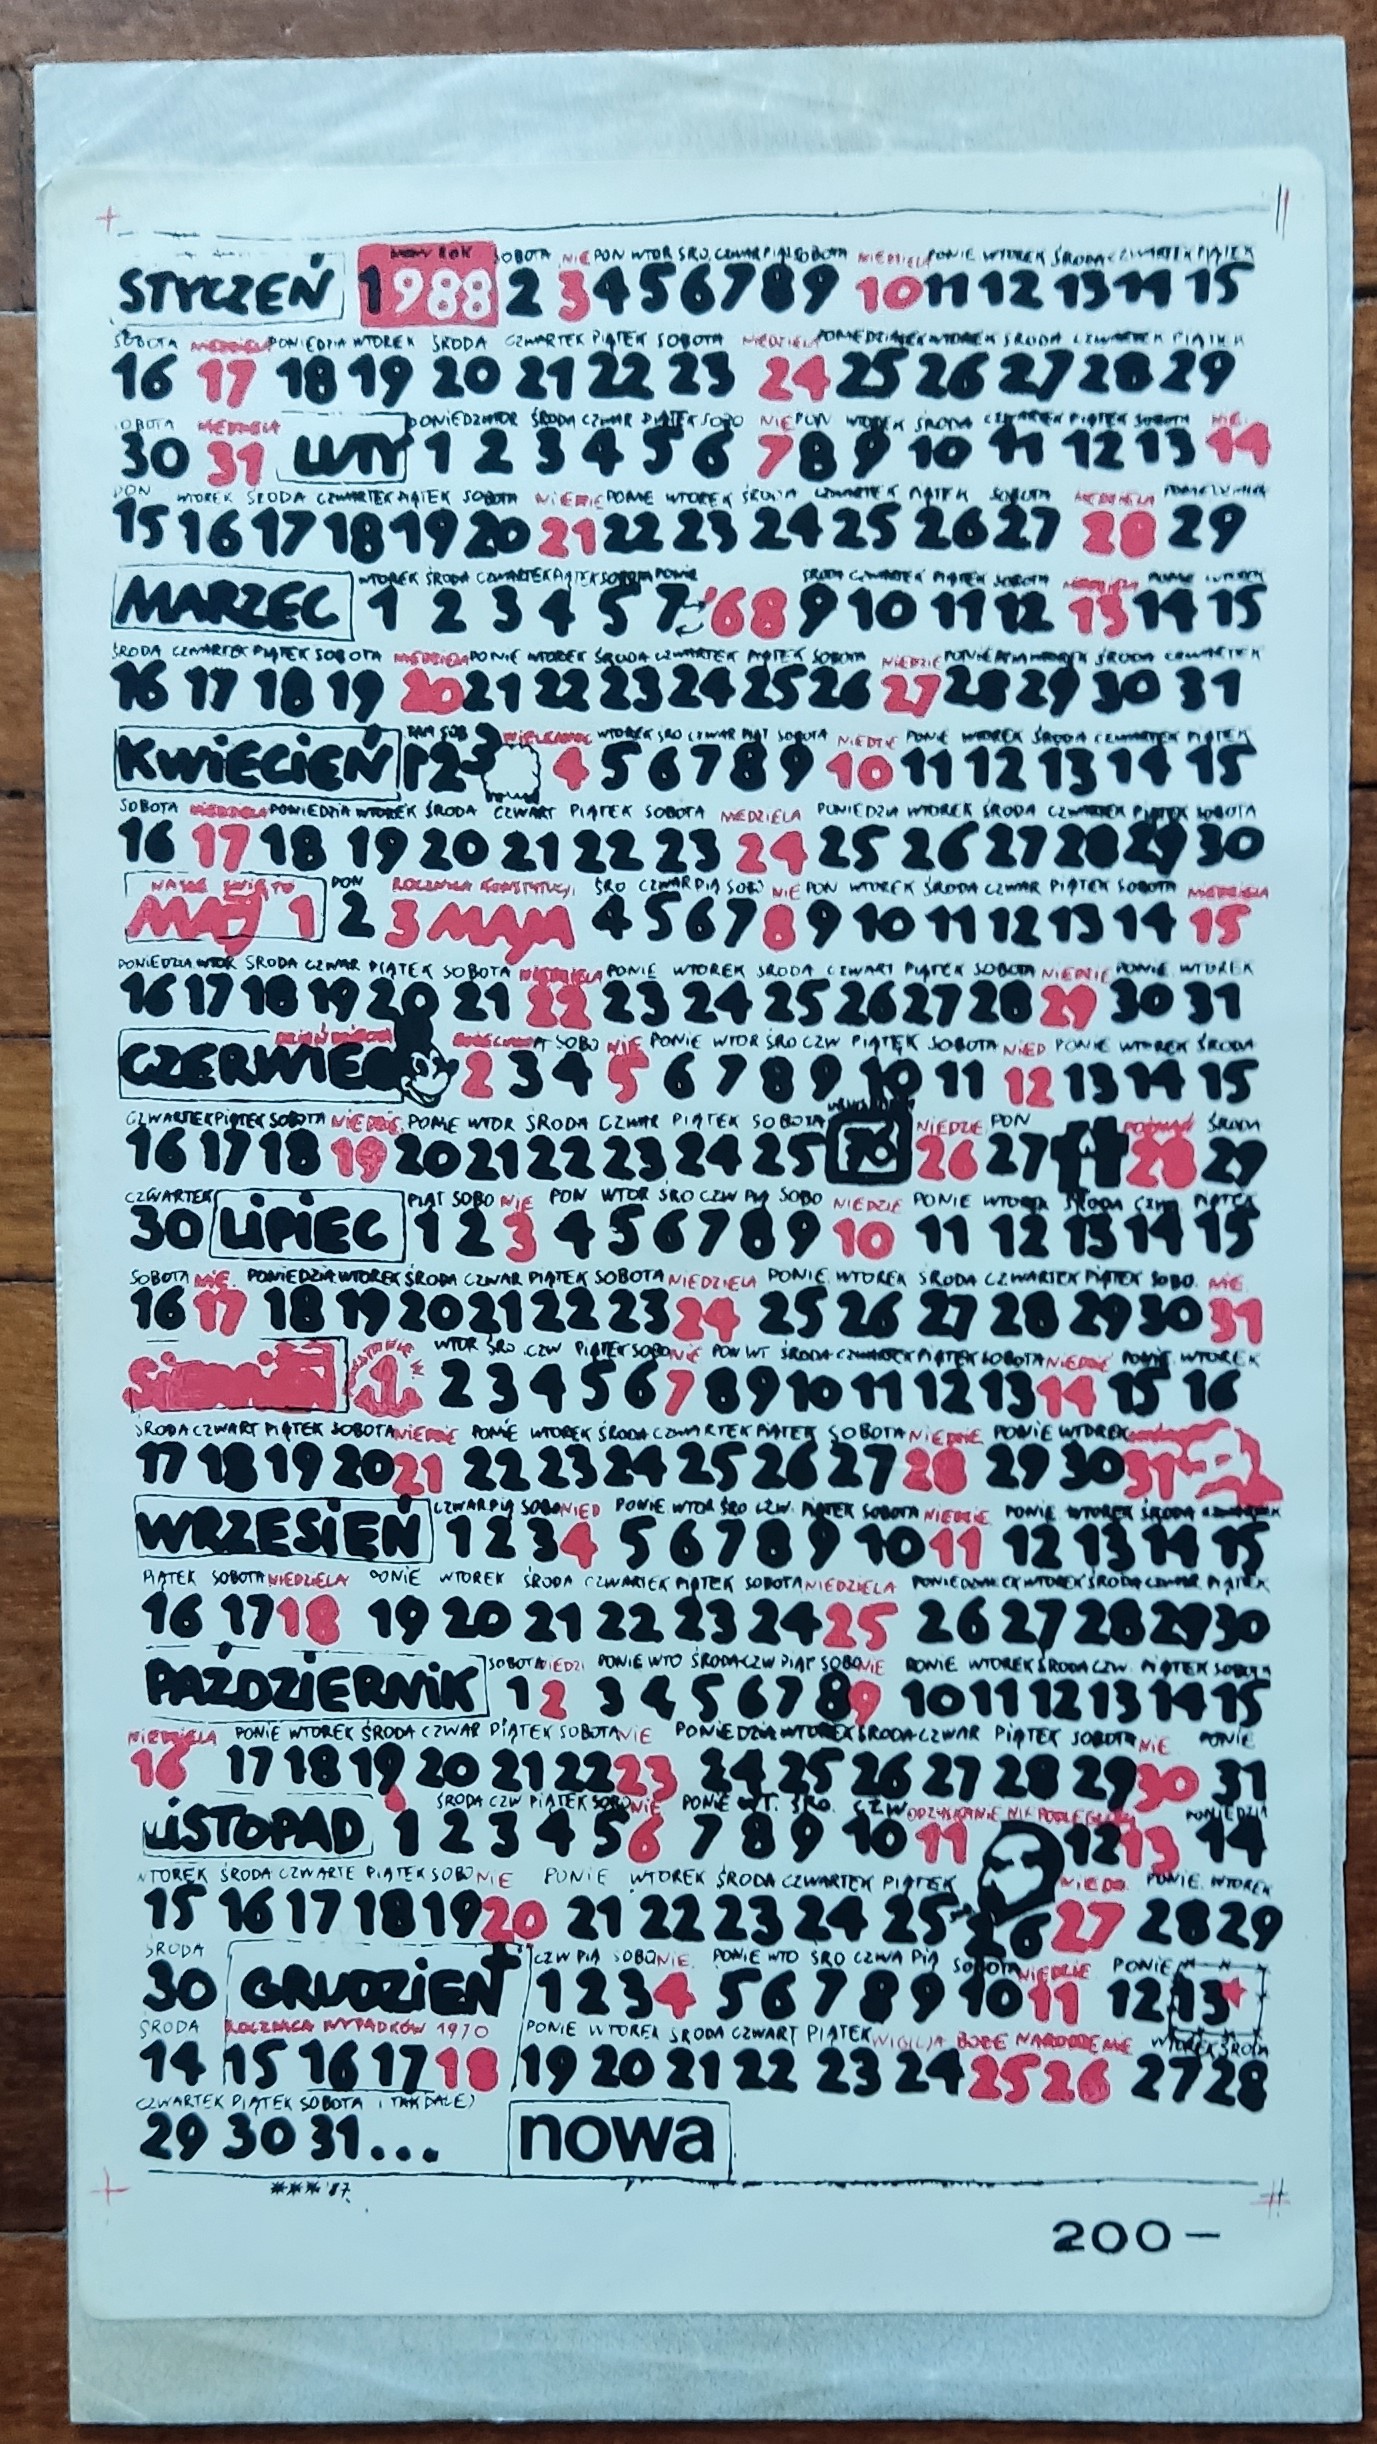 NOWY ROK SOBOTA NIE PON WTOR ŚRO. CZWAR PIĄ SOBOTA NIEDZIELA PONIE WTOREK ŚRODA CZWARTEK PIĄTEK
STYCZEŃ 1 988 2 3 4 5 6 7 8 9 10 11 12 13 14 15
SOBOTA NIEDZIELA PONIEDZIA WTOREK ŚRODA CZWARTEK PIĄTEK SOBOTA NIEDZIELA PONIEDZIAŁEK WTOREK ŚRODA CZWARTEK PIĄTEK
16 17 18 19 20 21 22 23 24 25 26 27 28 29
SOBOTA NIEDZIELA PONIEDZ WTOR ŚRODA CZWAR PIĄTEK SOBO NIE PON WTOREK ŚRODA CZWARTEK PIĄTEK SOBOTA NIE.
30 31 LUTY 1 2 3 4 5 6 7 8 9 10 11 12 13 14
PON WTOREK ŚRODA CZWARTEK PIĄTEK SOBOTA NIEDZIE PONIE WTOREK ŚRODA CZWARTEK PIĄTEK SOBOTA NIEDZIELA
15 16 17 18 19 20 21 22 23 24 25 26 27 28 29
WTOREK ŚRODA CZWARTEK PIĄTEK SOBOTA PONIE ŚRODA CZWARTEK PIĄTEK SOBOTA NIEDZIELA PONIE WTOREK
MARZEC 1 2 3 4 5 7 '68 9 10 11 12 13 14 15
ŚRODA CZWARTEK PIĄTEK SOBOTA NIEDZIELA PONIE WTOREK ŚRODA CZWARTEK PIĄTEK SOBOTA NIEDZIE PONIE WTOREK ŚRODA CZWARTEK
16 17 18 19 20 21 22 23 24 25 26 27 28 29 30 31
SOB WIELKANOC WTOREK ŚRO CZWAR PIĄT SOBOTA NIEDZIE PONIE WTOREK ŚRODA CZWARTEK PIĄTEK
KWIECIEŃ 1 2 3 4 5 6 7 8 9 10 11 12 13 14 15
SOBOTA NIEDZIELA PONIEDZIA WTOREK ŚRODA CZWART PIĄTEK SOBOTA NIEDZIELA PONIEDZIA WTOREK ŚRODA CZWARTEK PIĄTEK SOBOTA
16 17 18 19 20 21 22 23 24 25 26 27 28 29 30
NASZE ŚWIĘTO PON ROCZNICA KONSTYTUCJI ŚRO CZWAR PIĄ SOBO NIE PON WTOREK ŚRODA CZWAR PIĄTEK SOBOTA NIEDZIELA
MAJ 1 2 3 MAJA 4 5 6 7 8 9 10 11 12 13 14 15
PONIEDZIA WTOR ŚRODA CZWAR PIĄTEK SOBOTA NIEDZIELA PONIE WTOREK ŚRODA CZWART PIĄTEK SOBOTA NIEDZIE PONIE WTOREK
16 17 18 19 20 21 22 23 24 25 26 27 28 29 30 31
DZIEŃ DZIECKA SOBO NIE PONIE WTOR ŚRO CZW PIĄTEK SOBOTA NIED PONIE WTOREK ŚRODA
CZERWIEC 2 3 4 5 6 7 8 9 10 11 12 13 14 15
CZWARTEK PIĄTEK SOBOTA NIEDZIE PONIE WTOR ŚRODA CZWAR PIĄTEK SOBOTA NIEDZIE PON POZNAŃ ŚRODA
16 17 18 19 20 21 22 23 24 25 76 26 27 28 29
CZWARTEK PIĄT SOBO NIE PON WTOR ŚRO CZW PIĄ SOBO NIEDZIE PONIE WTOREK ŚRODA CZW. PIĄTEK
30 LIPIEC 1 2 3 4 5 6 7 8 9 10 11 12 13 14 15
SOBOTA NIE. PONIEDZIA WTOREK ŚRODA CZWAR PIĄTEK SOBOTA NIEDZIELA PONIE. WTOREK ŚRODA CZWARTEK PIĄTEK SOBO. NIE.
16 17 18 19 20 21 22 23 24 25 26 27 28 29 30 31
WTOR ŚRO. CZW PIĄTEK SOBO NIE PON WT. ŚRODA CZWARTEK PIĄTEK SOBOTA NIEDZIE PONIE. WTOREK
Sierpień 1 2 3 4 5 6 7 8 9 10 11 12 13 14 15 16
ŚRODA CZWART PIĄTEK SOBOTA NIEDZIE PONIE WTOREK ŚRODA CZWARTEK PIĄTEK SOBOTA NIEDZIE PONIE WTOREK
17 18 19 20 21 22 23 24 25 26 27 28 29 30 31
CZWAR PIĄ SOBO NIED PONIE. WTOR ŚRO CZW. PIĄTEK SOBOTA NIEDZIE. PONIE WTOREK ŚRODA CZWARTEK
WRZESIEŃ 1 2 3 4 5 6 7 8 9 10 11 12 13 14 15
PIĄTEK SOBOTA NIEDZIELA PONIE WTOREK ŚRODA CZWARTEK PIĄTEK SOBOTA NIEDZIELA PONIEDZIAŁEK WTOREK ŚRODA CZWAR PIĄTEK
16 17 18 19 20 21 22 23 24 25 26 27 28 29 30
SOBOTA NIEDZI PONIE WTO ŚRODA CZW PIĄT SOBO NIE PONIE WTOREK ŚRODA CZW. PIĄTEK SOBOTA
PAŹDZIERNIK 1 2 3 4 5 6 7 8 9 10 11 12 13 14 15
NIEDZIELA PONIE WTOREK ŚRODA CZWAR PIĄTEK SOBOTA NIE PONIEDZIA WTOREK ŚRODA CZWAR PIĄTEK SOBOTA NIE PONIE
16 17 18 19 20 21 22 23 24 25 26 27 28 29 30 31
ŚRODA CZW PIĄTEK SOBO NIE PONIE WT. ŚRO. CZW ODZYSKANIE NIEPODLEGŁOŚCI PONIEDZIA
LISTOPAD 1 2 3 4 5 6 7 8 9 10 11 12 13 14
WTOREK ŚRODA CZWARTE PIĄTEK SOBO NIE PONIE WTOREK ŚRODA CZWARTEK PIĄTEK NIEDZ. PONIE. WTOREK
15 16 17 18 19 20 21 22 23 24 25 26 27 28 29
ŚRODA CZW PIĄ SOBO NIE. PONIE WTO ŚRO CZWA PIĄ SOBOTA NIEDZIE PONIE
30 GRUDZIEŃ 1 2 3 4 5 6 7 8 9 10 11 12 13
ŚRODA ROCZNICA WYPADKÓW 1970 PONIE WTOREK ŚRODA CZWART PIĄTEK WIGILJA BOŻE NARODZENIE WTOREK ŚRODA
14 15 16 17 18 19 20 21 22 23 24 25 26 27 28
CZWARTEK PIĄTEK SOBOTA I TAK DALEJ
29 30 31...
nowa
*** '87.
200 —